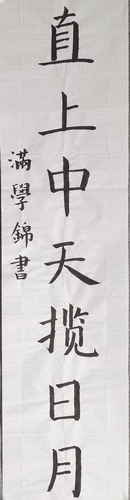 直上中天揽日月
滿學錦書